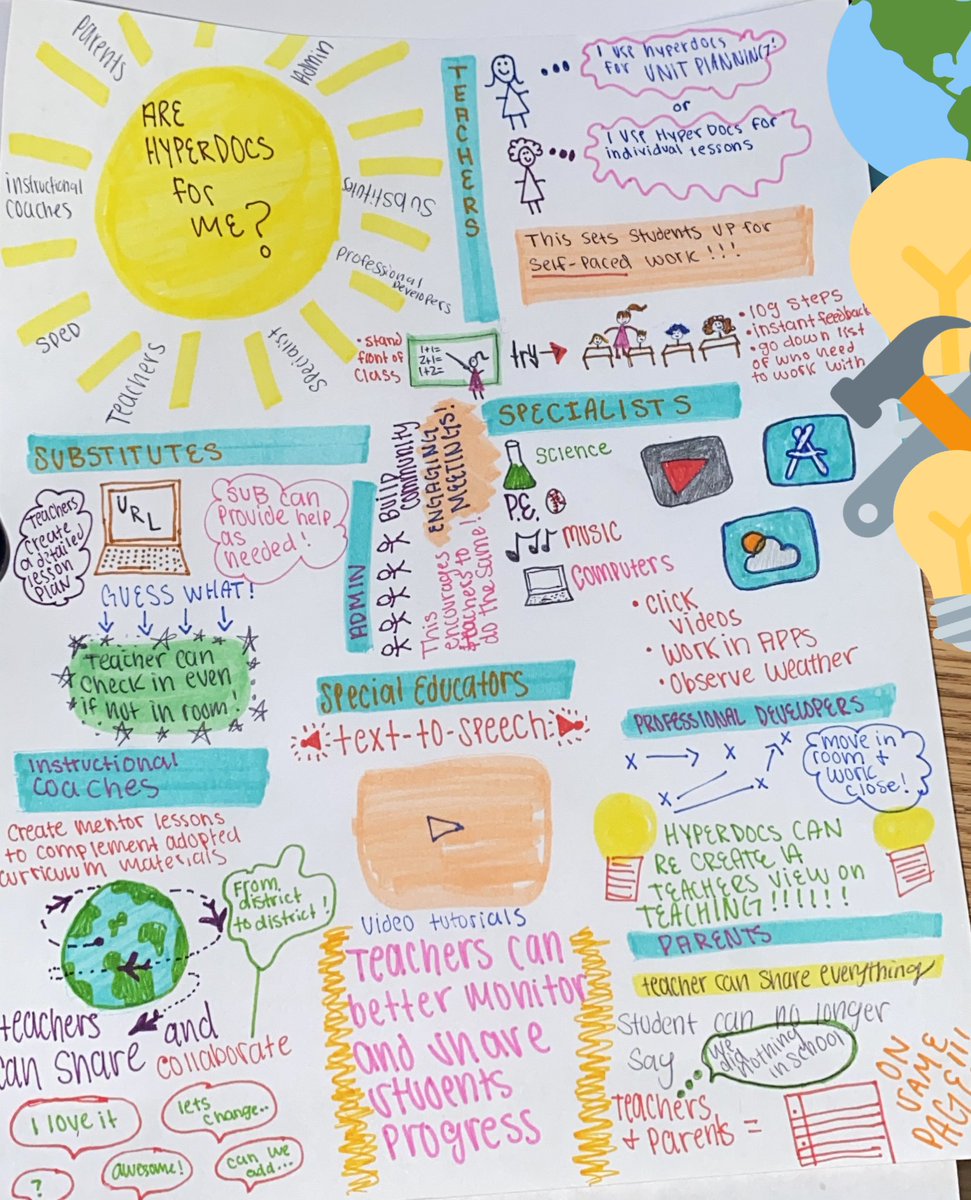 ARE
HYPERDOCS
for
ME?
parents
Admin
Substitutes
professional
Developers
Specialist
Teachers
SPED
instructional
coaches
TEACHERS
I use hyperdocs
for UNIT PLANNING!
or
I USE HYPERDOCS for
individual lessons
This sets students up for
self-paced work !!!
• stand
front of
class
1+1=
2+1=
1+2=
try→
• log steps
• instant feedback
• go down list
of who need
to work with
SUBSTITUTES
Teachers
create
a ditailed
lesson
plan
URL
SUB can
Provide help
as
needed!
GUESS WHAT!
Teacher can
check in even
if not in room!
ADMIN
Build
community
ENGAGING
MEETINGS!
This
encourages
teachers to
do the same!
SPECIALISTS
Science
P.E.
MUSIC
Computers
• click
videos
• work in APPS
• Observe weather
Special Educators
text-to-speech
video tutorials
Teachers can
better monitor
and share
students
progress
instructional
coaches
Create mentor lessons
to complement adopted
curriculum materials
From
district
to district!
teachers and
can share collaborate
I love it
lets
change..
?
awesome!
can we
add...
PROFESSIONAL DEVELOPERS
X → X X
X X
move in
room +
work
close!
HYPERDOCS CAN
RE CREATE A
TEACHERS VIEW ON
TEACHING!!!!!!
PARENTS
teacher can share everything
Student can no longer
say
we
did nothing
in school
Teachers
+ Parents =
ON
SAME
PAGE!!!